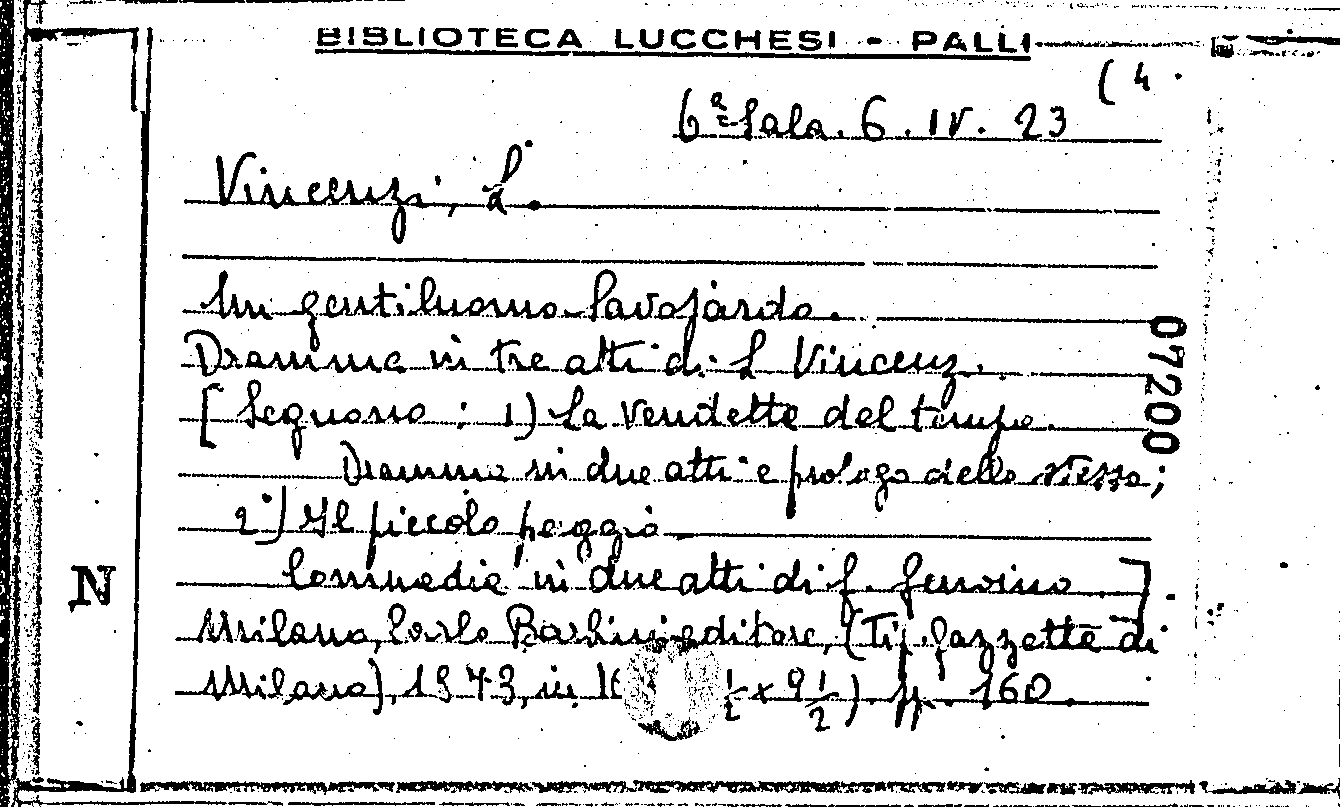 BIBLIOTECA LUCCHESI - PALLI
(4.
6ª Sala. 6. IV. 23
Vincenzi, L.
Un gentiluomo Savojardo.
Dramma in tre atti di L Vincenzi.
[Seguono: 1) La vendetta del tempo.
Dramma in due atti e prologo dello stesso;
2°) Il piccolo poggio
Commedia in due atti di
Milano, Carlo Barbini editore, (Tip. Gazzetta di
Milano), 1873, in 16 ½ x 9 ½) pp. 160.
07200
N